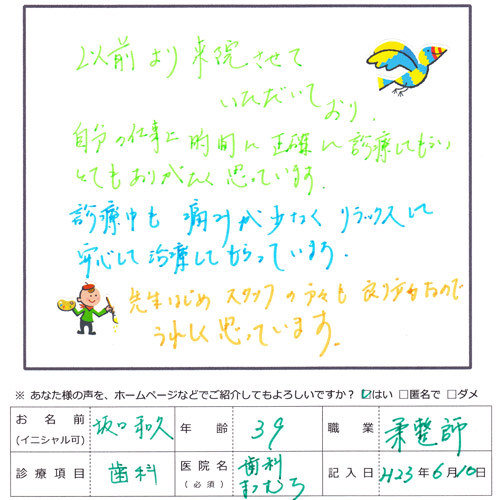 以前より来院させて
いただいており、
自分の仕事に時間に正確に診療してもらい
とてもありがたく思っています。
診療中も痛みが少なくリラックスして
安心して治療してもらっています。
先生はじめスタッフの方々も良い方なので
うれしく思っています。
※ あなた様の声を、ホームページなどでご紹介してもよろしいですか? ☑はい □匿名で □ダメ
お名前 (イニシャル可) 坂口和久 年齢 39 職業 柔整師
診療項目 歯科 医院名 (必須) 歯科まつむら 記入日 H23年6月10日